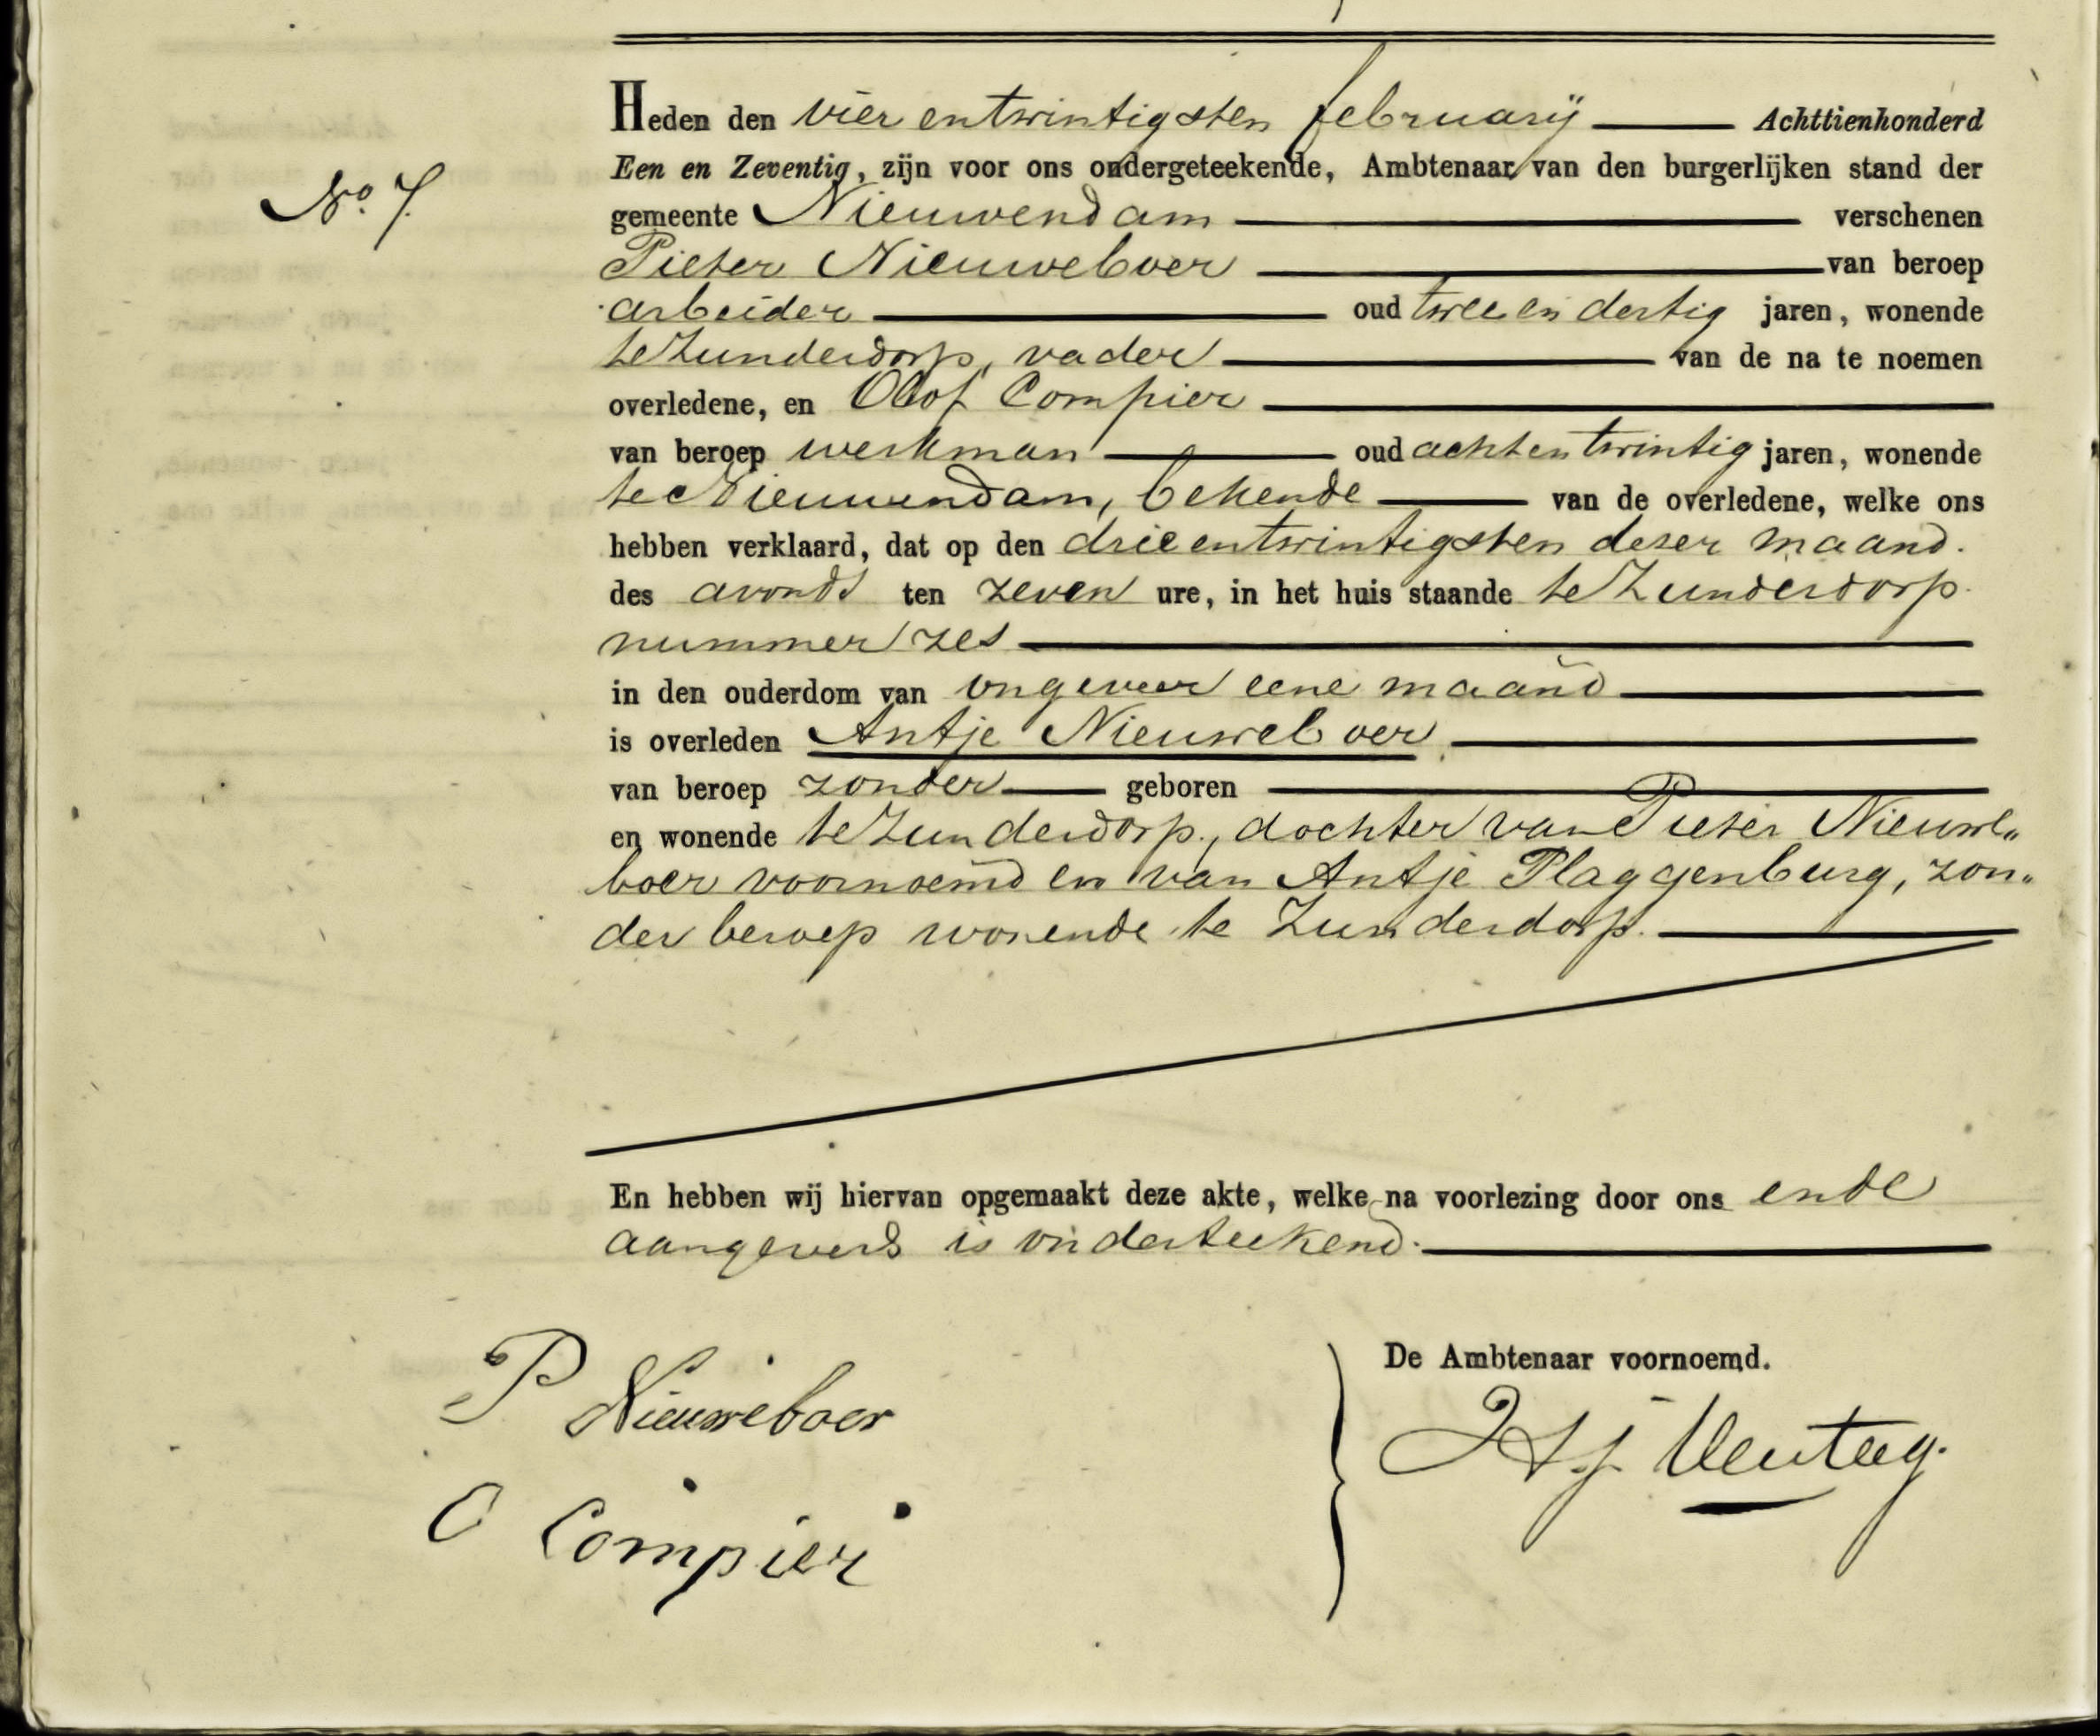 Heden den vier en twintigsten februarij Achttienhonderd
Een en Zeventig, zijn voor ons ondergeteekende, Ambtenaar van den burgerlijken stand der
No. 7.
gemeente Nieuwendam verschenen
Pieter Nieuweboer van beroep
arbeider oud twee en dertig jaren, wonende
te Zunderdorp, vader van de na te noemen
overledene, en Olof Compier
van beroep werkman oud acht en twintig jaren, wonende
te Nieuwendam, bekende van de overledene, welke ons
hebben verklaard, dat op den drie en twintigsten dezer maand.
des avonds ten zeven ure, in het huis staande te Zunderdorp
nummer zes
in den ouderdom van ongeveer eene maand
is overleden Antje Nieuweboer
van beroep zonder geboren
en wonende te Zunderdorp, dochter van Pieter Nieuwe„
boer voornoemd en van Antje Plaggenburg, zon„
der beroep wonende te Zunderdorp.
En hebben wij hiervan opgemaakt deze akte, welke na voorlezing door ons en de
aangevers is onderteekend.
De Ambtenaar voornoemd.
P Nieuweboer
O Compier